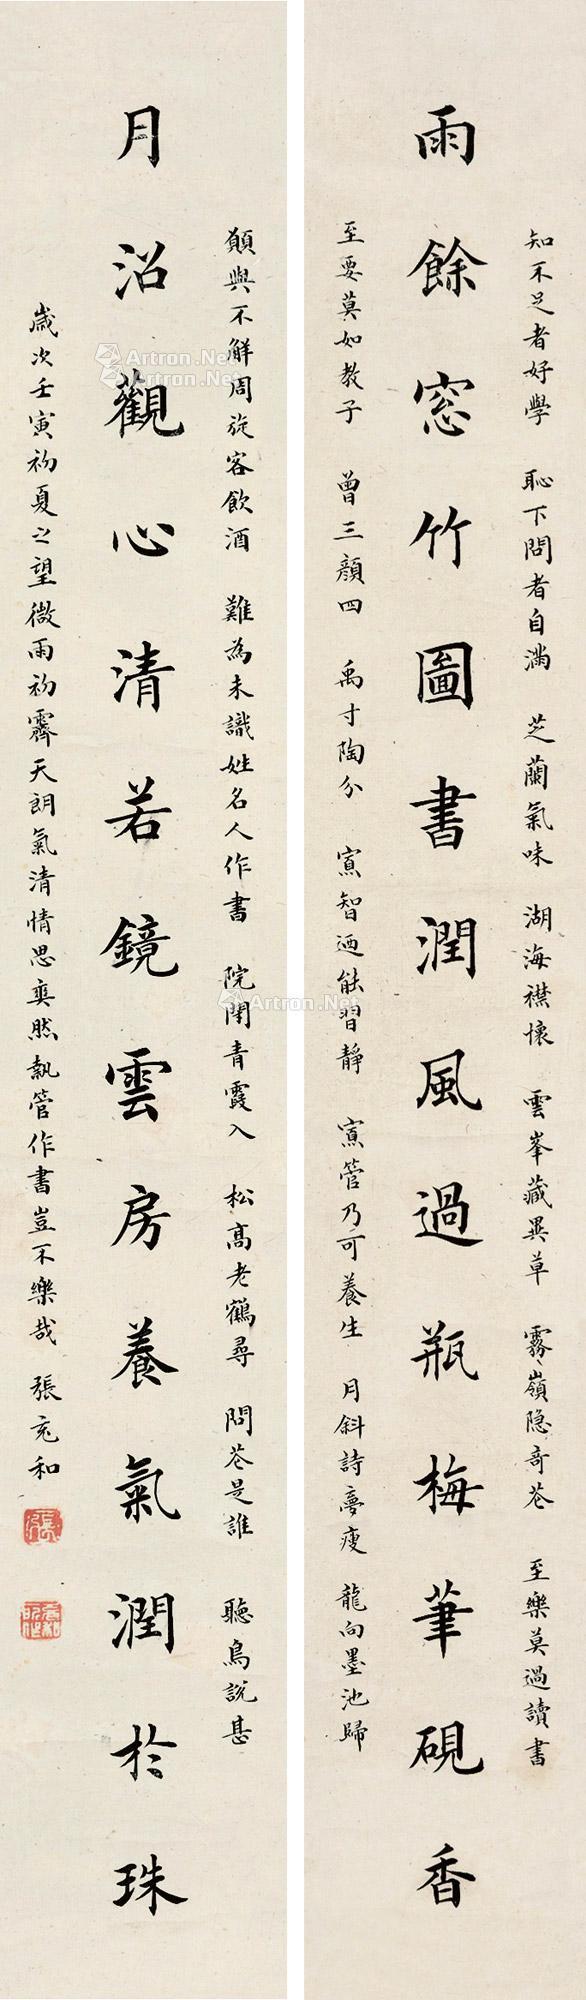 知不足者好學 恥下問者自滿 芝蘭氣味 湖海襟懷 雲峯藏異草 霧嶺隐奇花 至樂莫過讀書
雨餘窓竹圖書潤風過瓶梅筆硯香
至要莫如教子 曾三顏四 禹寸陶分 寡智迺能習靜 寡營乃可養生 月斜詩夢瘦 龍向墨池歸
願與不解周旋客飲酒 難為未識姓名人作書 院閉青霞入 松高老鶴尋 問花是誰 聽鳥說甚
月沼觀心清若鏡雲房養氣潤於珠
歲次壬寅初夏之望微雨初霽天朗氣清情思爽然執管作書豈不樂哉 張充和
張
充和
Artron.Net
Artron.Net
Artron.Net
Artron.Net